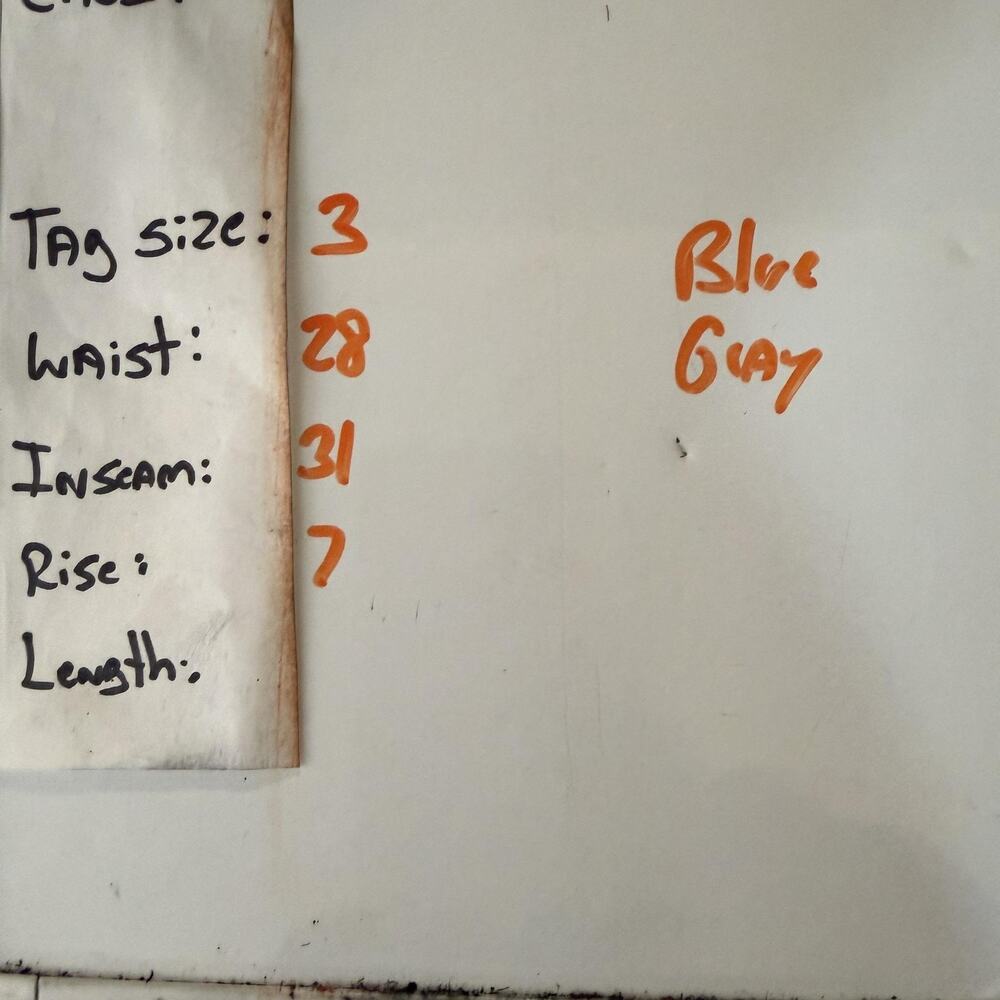 Tag size: 3
Waist: 28
Inseam: 31
Rise: 7
Length:
Blue
Gray